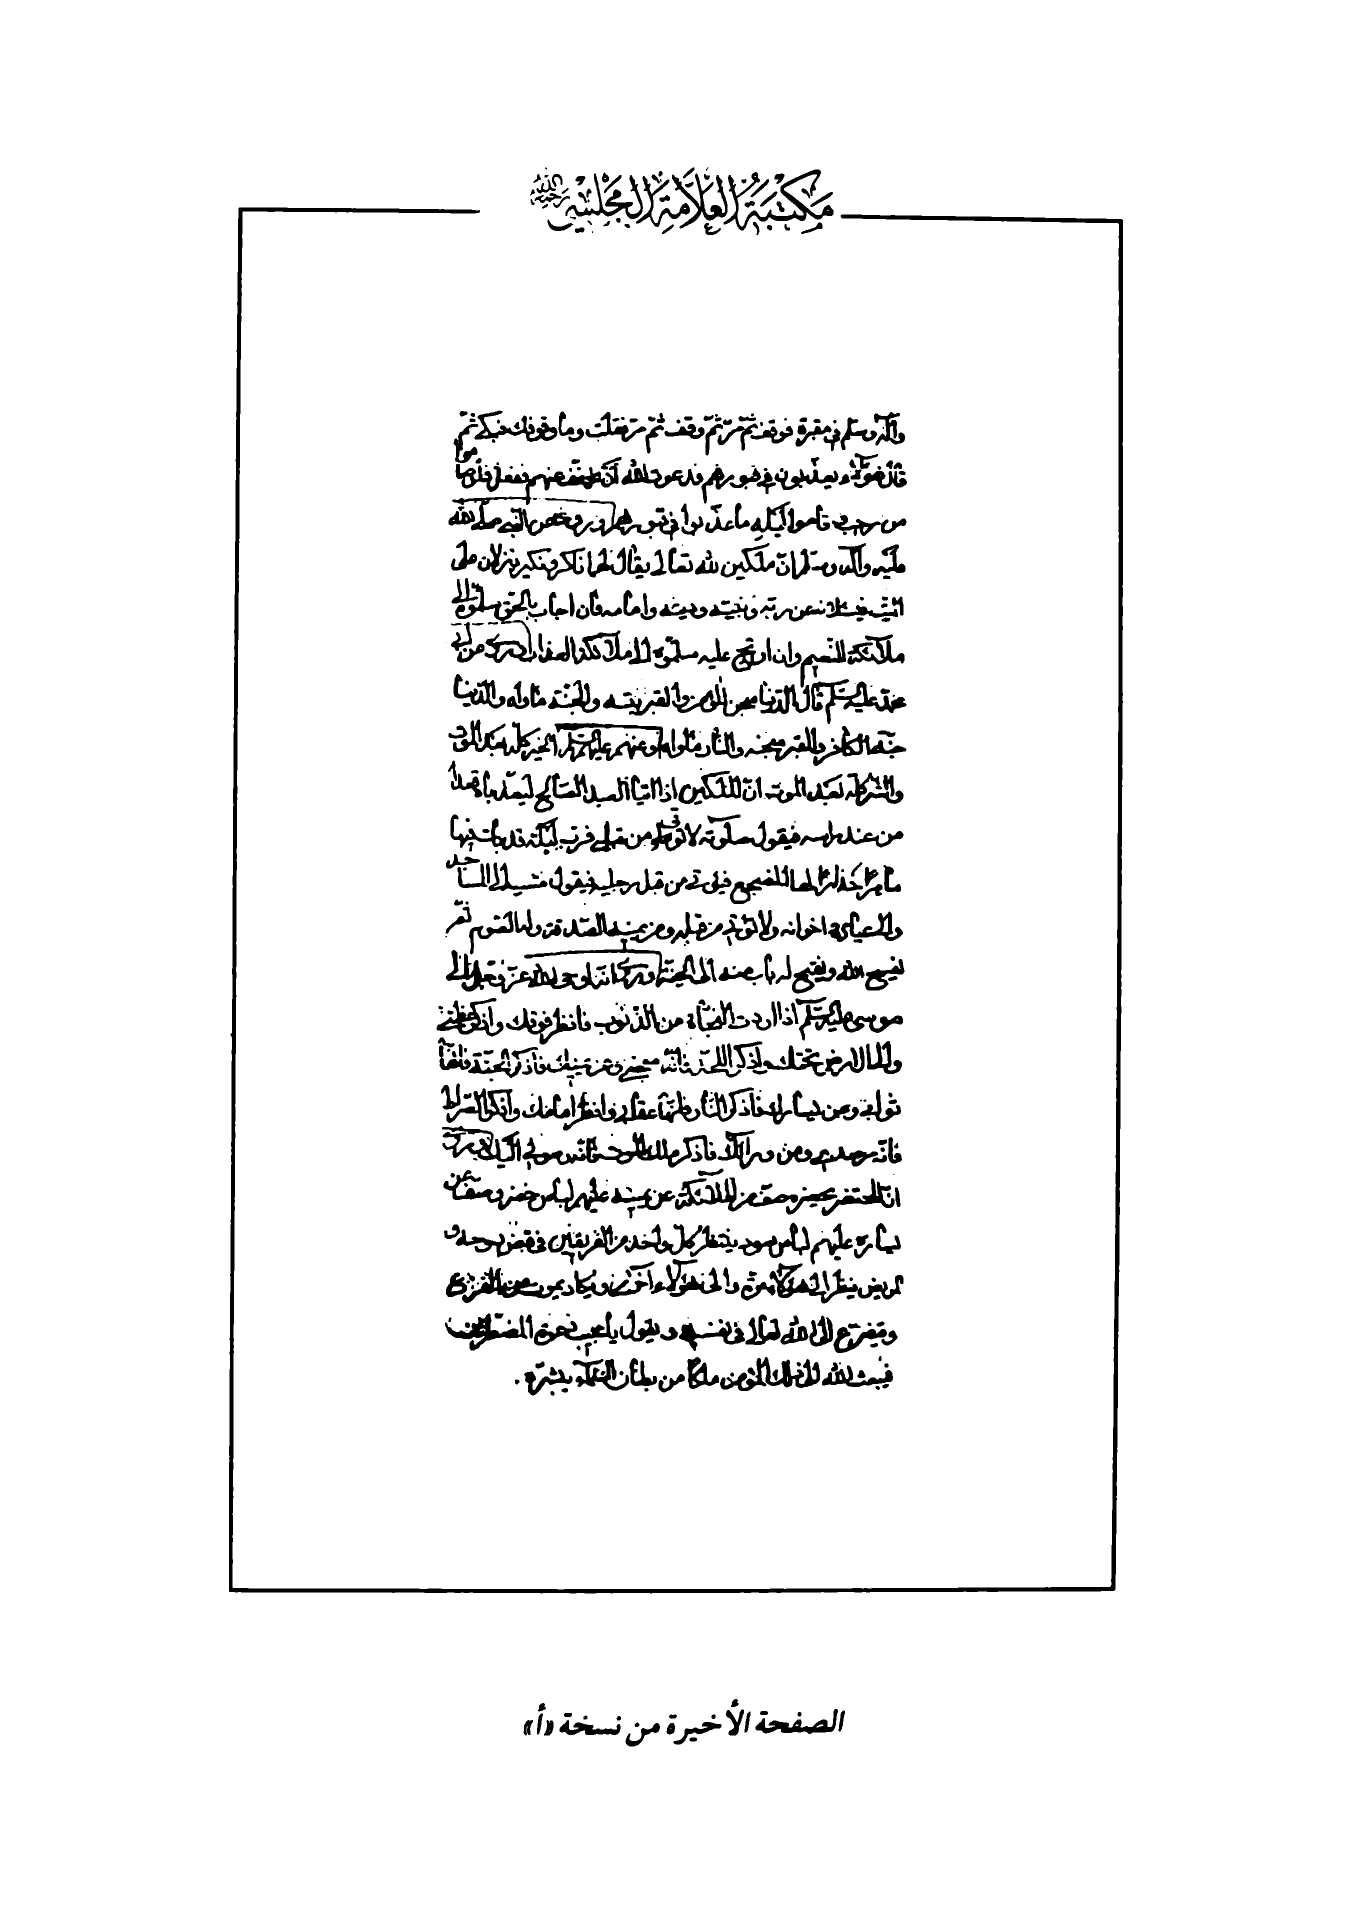 مكتبة العلامة المجلسي رحمه الله
وآله وسلم في مقبرة فوقف ثم مر ثم وقف ثم مر فقلت وما وقوفك فبكى ثم
قال هؤلاء يعذبون في قبورهم فدعوت الله أن يخفف عنهم ففعل فلو صاموا
من رجب وقاموا ليله ما عذبوا في قبورهم وروي عن النبي صلى الله
عليه وآله وسلم ان ملكين لله تعالى يقال لهما ناكر ونكير ينزلان على
الميت فيسئلانه عن ربه ونبيه ودينه وامامه فان اجاب بالحق سلموه الى
ملائكة النعيم وان ارتج عليه سلموه الى ملائكة العذاب وروي عن ابي
عبد الله عليه السلم قال الدنيا سجن المؤمن والقبر بيته والجنة مأواه والدنيا
جنة الكافر والقبر سجنه والنار مأواه وعنهم عليهم السلم الخير كله بعد الموت
والشر كله بعد الموت ان الملكين اذا اتيا العبد الصالح ليقعداه
من عند راسه فيقول صلوته لا تؤتى من قبلي فرب ليلة قد بات فيها
ساهرا حذرا لهذا المضجع فيؤتى من قبل رجليه فيقول مشيه الى المساجد
والى اخوانه ولا تؤتى من قبله ومن يمينه الصدقة والصوم ثم
يفسح الله ويفتح له باب منه الى الجنة وروي انه اوحى الله عز وجل الى
موسى عليه السلم اذا اردت النجاة من الذنوب فانظر فوقك واذكر عظمتي
والى الارض تحتك واذكر اللحد فانه وعن يمينك فاذكر الجنة فانها
ثوابي وعن يسارك فاذكر النار فانها عقابي وانظر امامك واذكر الصراط
فانه ومن ورائك فاذكر ملك الموت فانه الیك وروي
ان المحتضر يحضره صف من الملائكة عن يمينه عليهم لباس خضر وصف عن
يساره عليهم لباس سود ينتظر كل واحد من الفريقين في قبض روحه و
المريض ينظر الى هؤلاء مرة والى هؤلاء اخرى ويكاد يموت من الفزع
ويفزع الى الله تعالى في نفسه ويقول يا مجيب دعوة المضطرين
فيبعث الله الى ذلك المؤمن ملكا من بطنان السماء يبشره .
الصفحة الأخيرة من نسخة «أ»